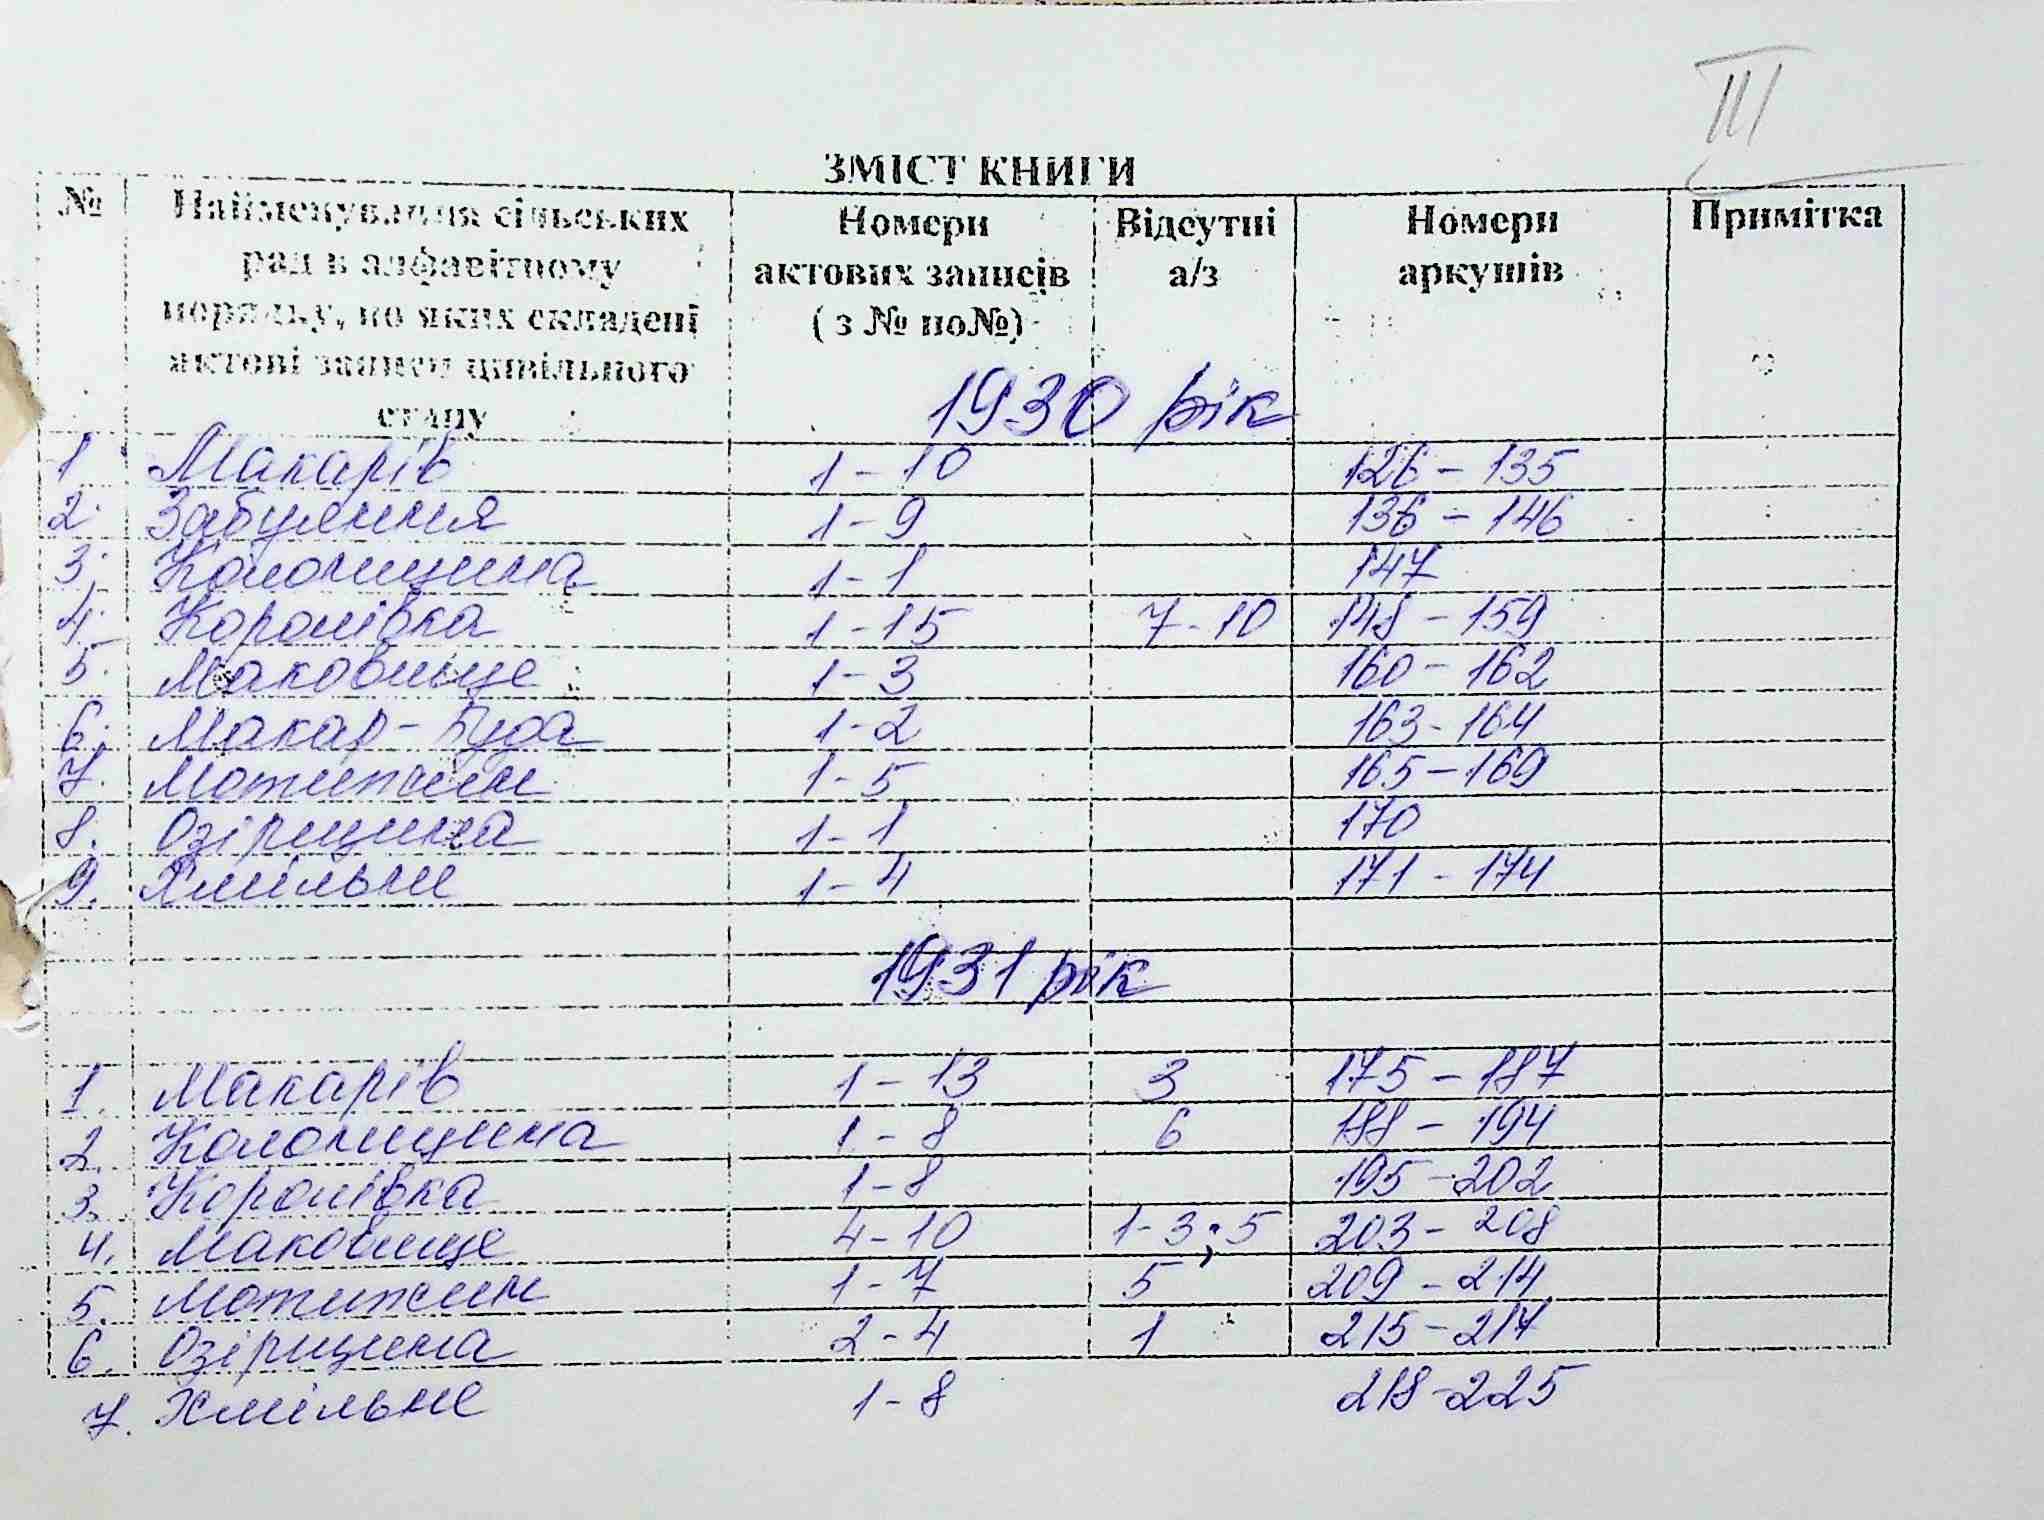 III
ЗМІСТ КНИГИ
№ Найменування сільських рад в алфавітному порядку, по яких складені актові записи цивільного стану Номери актових записів ( з № по№) Відсутні а/з Номери аркушів Примітка
1930 рік
1 Макарів 1-10 126-135
2. Забуяння 1-9 136-146
3. Колонщина 1-1 147
4. Королівка 1-15 7-10 148-159
5. Маковище 1-3 160-162
6. Макар-Буда 1-2 163-164
7. Мотижин 1-5 165-169
8. Озірщина 1-1 170
9. Хмільне 1-4 171-174
1931 рік
1. Макарів 1-13 3 175-187
2. Колонщина 1-8 6 188-194
3. Королівка 1-8 195-202
4. Маковище 4-10 1-3; 5 203-208
5. Мотижин 1-7 5 209-214
6. Озірщина 2-4 1 215-217
7. Хмільне 1-8 218-225